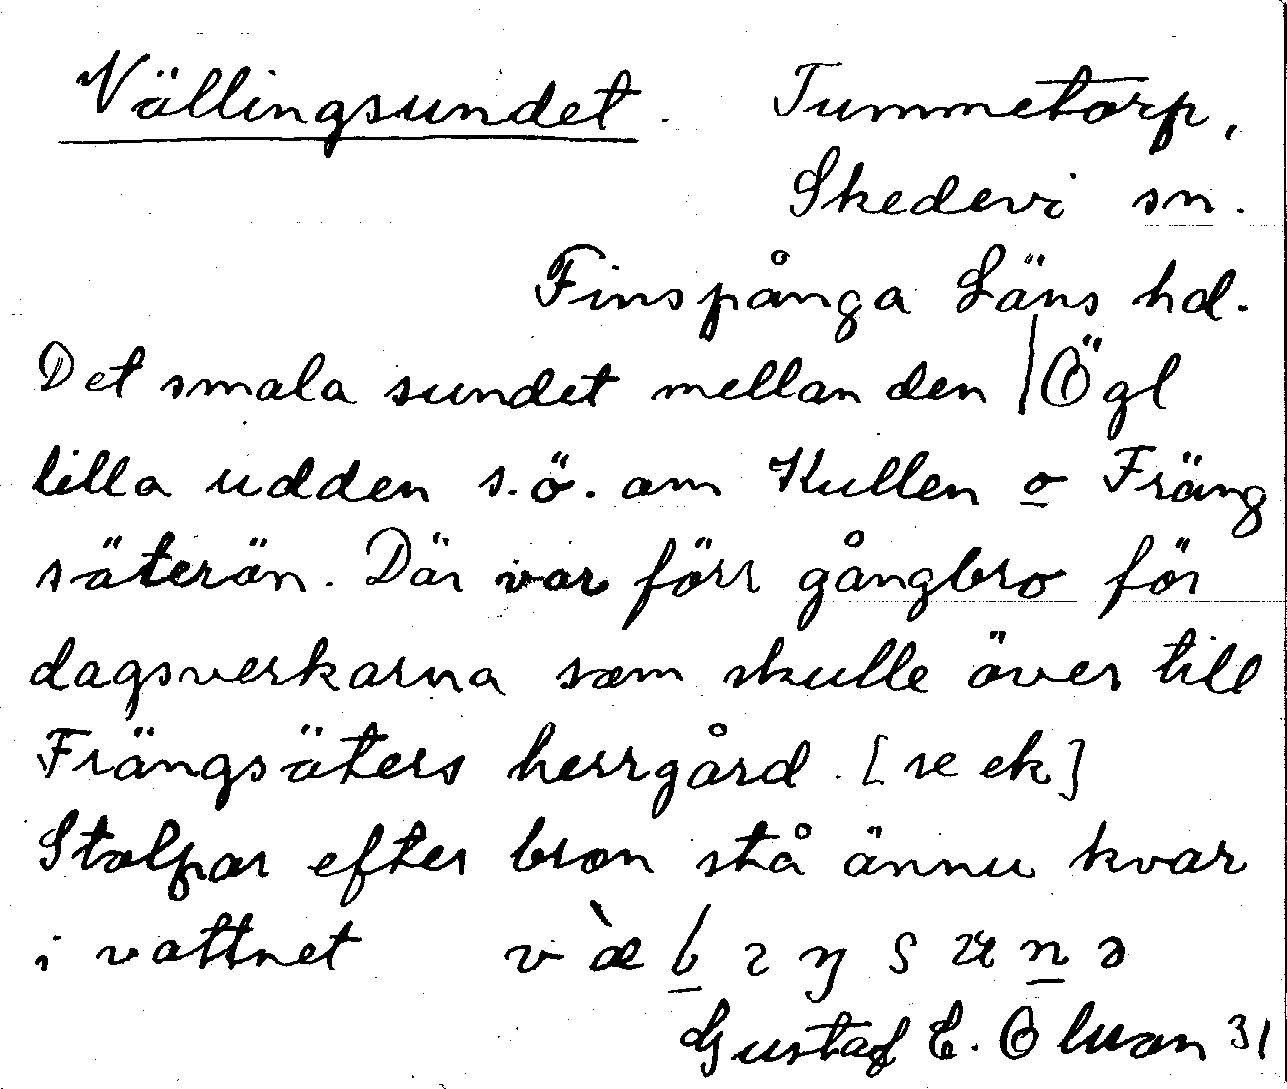 Vällingsundet. Tummetorp,
Skedevi sn.
Finspånga Läns hd.
Det smala sundet mellan den | Ögl
lilla udden s.ö. om Kullen o Fräng
säterän. Där var förr gångbro för
dagsverkarna som skulle över till
Frängsäters herrgård. [se ek]
Stolpar efter bron stå ännu kvar
i vattnet
Gustaf E. 31